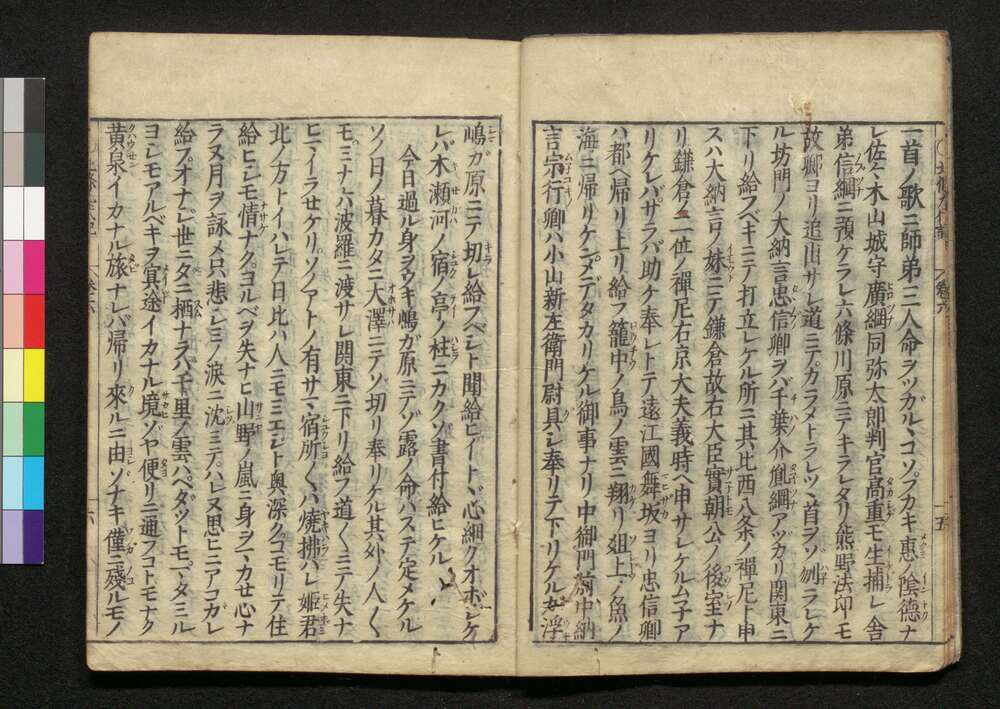 一首ノ歌ニ師弟三人命ヲツガル、コソフカキ惠ノ陰德ナ
レ佐々木山城守廣綱同弥太郎判官高重モ生捕レ舎
弟信綱ニ預ケラレ六條川原ニテキラレタリ熊野法印モ
故郷ヨリ追出サレ道ニテカラメトラレツ、首ヲゾ刎ラレケ
ル坊門ノ大納言忠信卿ヲバ千葉介胤綱アツカリ関東ニ
下リ給フベキニテ打立レケル所ニ其比西八条ノ禪尼ト申
スハ大納言ノ妹ニテ鎌倉故右大臣實朝公ノ後室ナ
リ鎌倉ノ二位ノ禪尼右京大夫義時ヘ申サレケルム子ア
リケレバサラバ助ケ奉レトテ遠江國舞坂ヨリ忠信卿
ハ都ヘ帰リ上リ給フ籠中ノ鳥ノ雲ニ翔リ爼上ノ魚ノ
海ニ帰リケンメデタカリケル御事ナリ中御門前中納
言宗行卿ハ小山新左衛門尉具シ奉リテ下リケル女浮
嶋ガ原ニテ切レ給フベシト聞給ヒイトヾ心細クオボシケ
レバ木瀬河ノ宿ノ亭ノ柱ニカクゾ書付給ヒケル
今日過ル身ヲウキ嶋ガ原ニテゾ露ノ命ハステ定メケル
ソノ日ノ暮カタニ大澤ニテソ切リ奉リケル其外ノ人〱
モミナ六波羅ニ渡サレ関東ニ下リ給フ道〱ニテ失ナ
ヒニイラセケリソノアトノ有サマ宿所〱ハ焼拂ハレ姫君
北ノ方トイハレテ日比ハ人ニモミエジト奥深クコモリテ住
給ヒシモ情ナクヨルベヲ失ナヒ山野ノ嵐ニ身ヲマカせ心ナ
ラヌ月ヲ詠メ只悲シミノ涙ニ沈ミテハレヌ思ヒニアコカレ
給フオナジ世ニタニ栖ナラバ千里ノ雲ハヘダツトモマタミル
ヨシモアルベキヲ冥途イカナル境ゾヤ便リニ通フコトモナク
黄泉イカナル旅ナレバ帰リ來ルニ由ソナキ僅ニ殘ルモノ